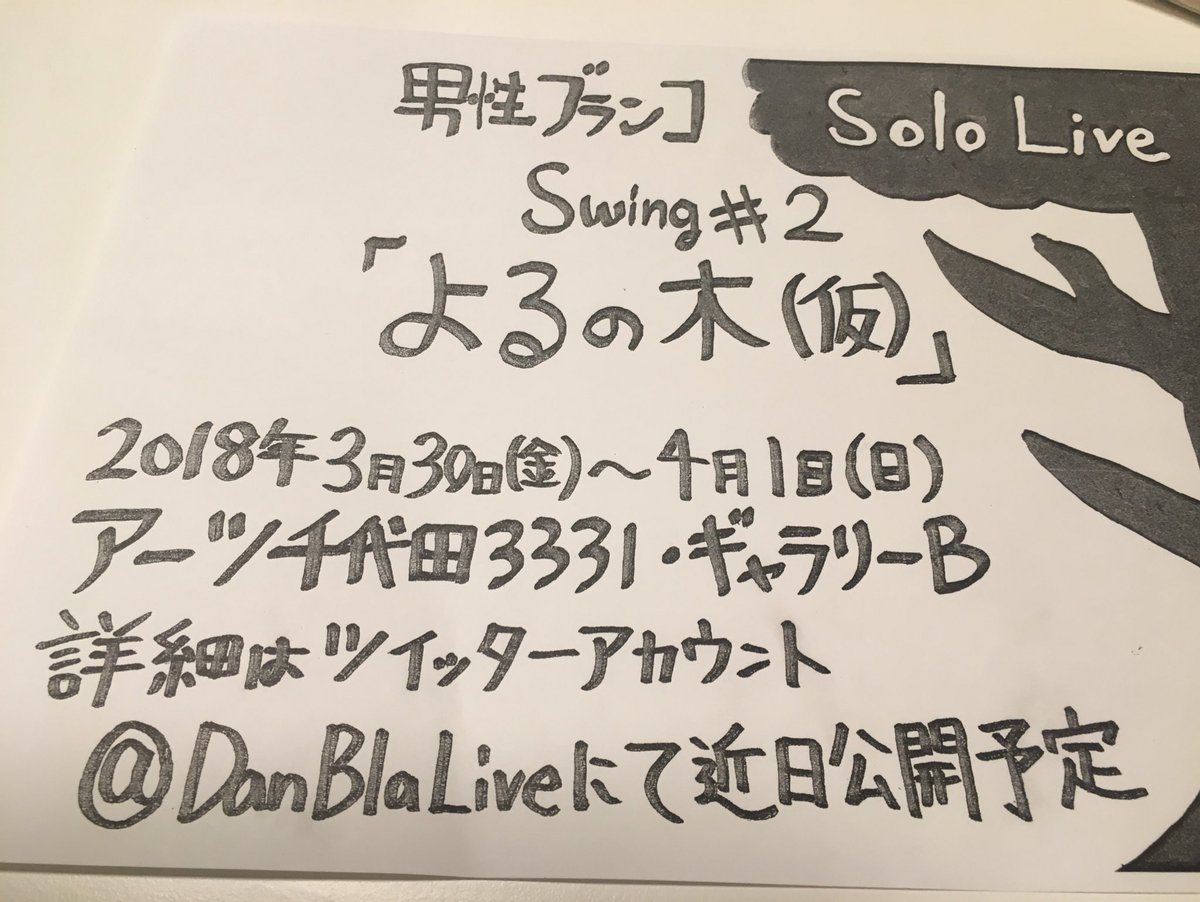 男性ブランコ
Solo Live
Swing#2
「よるの木(仮)」
2018年3月30日(金)～4月1日(日)
アーツ千代田3331・ギャラリーB
詳細はツイッターアカウント
@DanBlaLiveにて近日公開予定